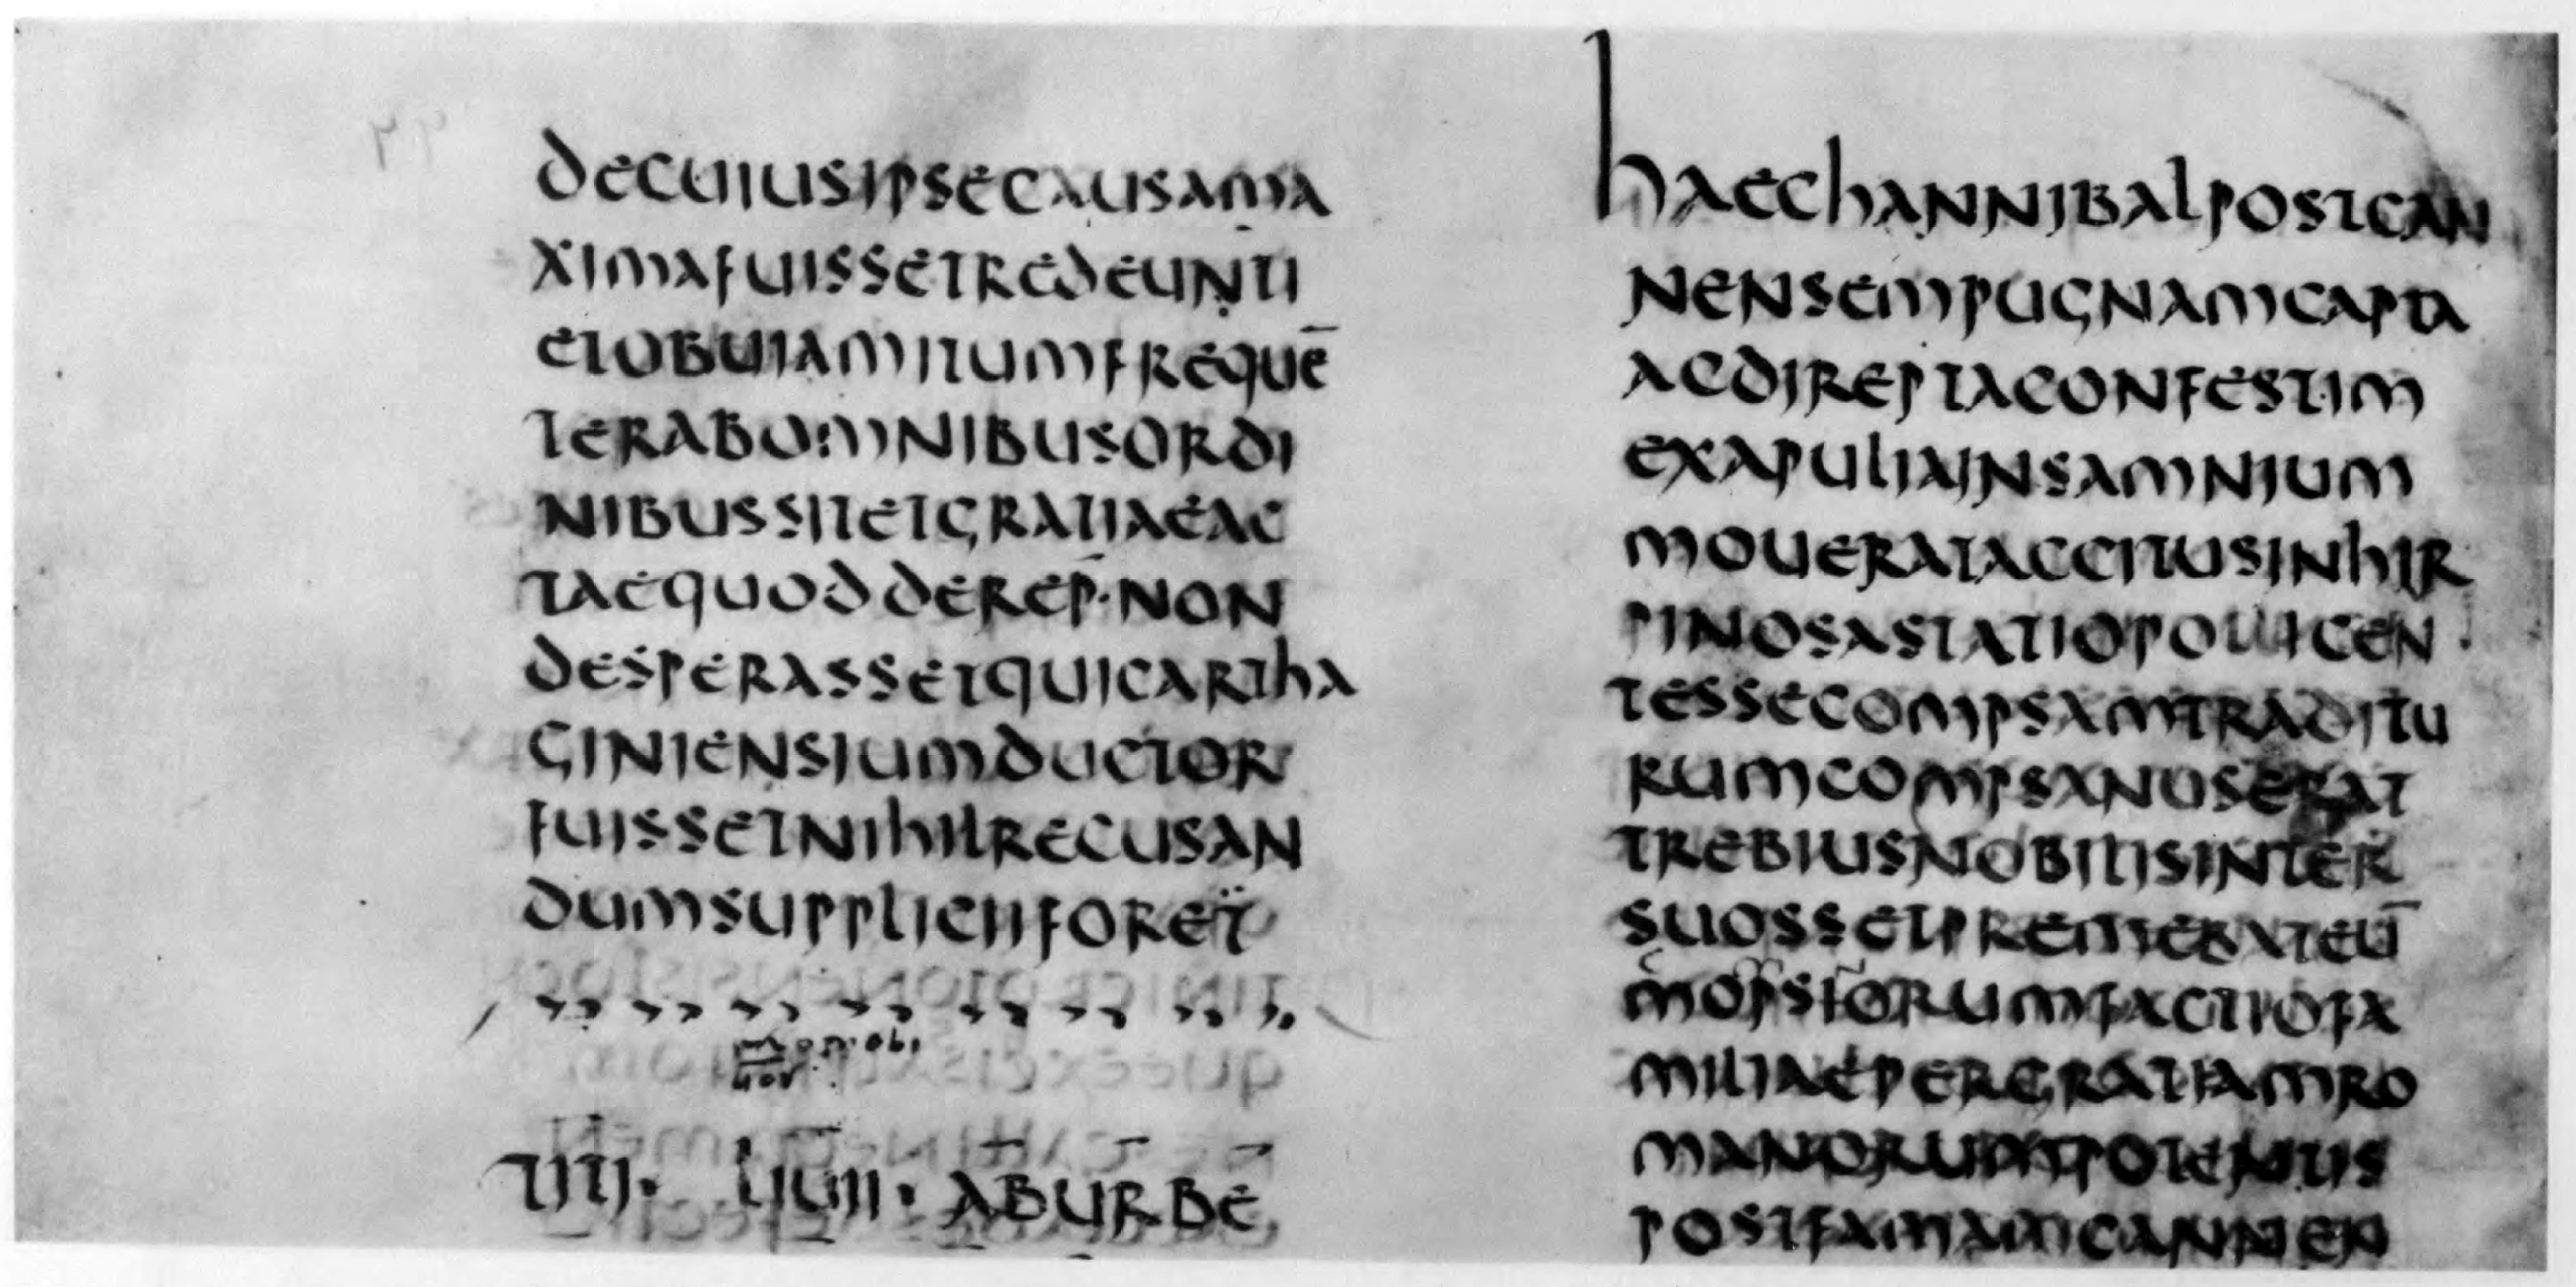 DECUIUSIPSECAUSAMA
XIMAFUISSETREDEUNTI
ETOBUIAMITUMFREQUE̅
TERABOMNIBUSORDI
NIBUSSITETGRATIAEAC
TAEQUODDEREP·NON
DESPERASSETQUICARTHA
GINIENSIUMDUCTOR
FUISSETNIHILRECUSAN
DUMSUPPLICIIFORET
TITI· LIUII· ABURBE̅
HAECHANNIBALPOSTCAN
NENSEMPUGNAMCAPTA
ACDIREPTACONFESTIM
EXAPULIAINSAMNIUM
MOUERATACCITUSINHIR
PINOSASTATIOPOLLICEN
TESSECOMPSAMTRADITU
RUMCOMPSANUSERAT
TREBIUSNOBILISINTER
SUOSSETPREMEBATEU̅
MOPSIORUMFACTIOFA
MILIAEPERGRATIAMRO
MANORUMPOTENTIS
POSTFAMAMCANNEN